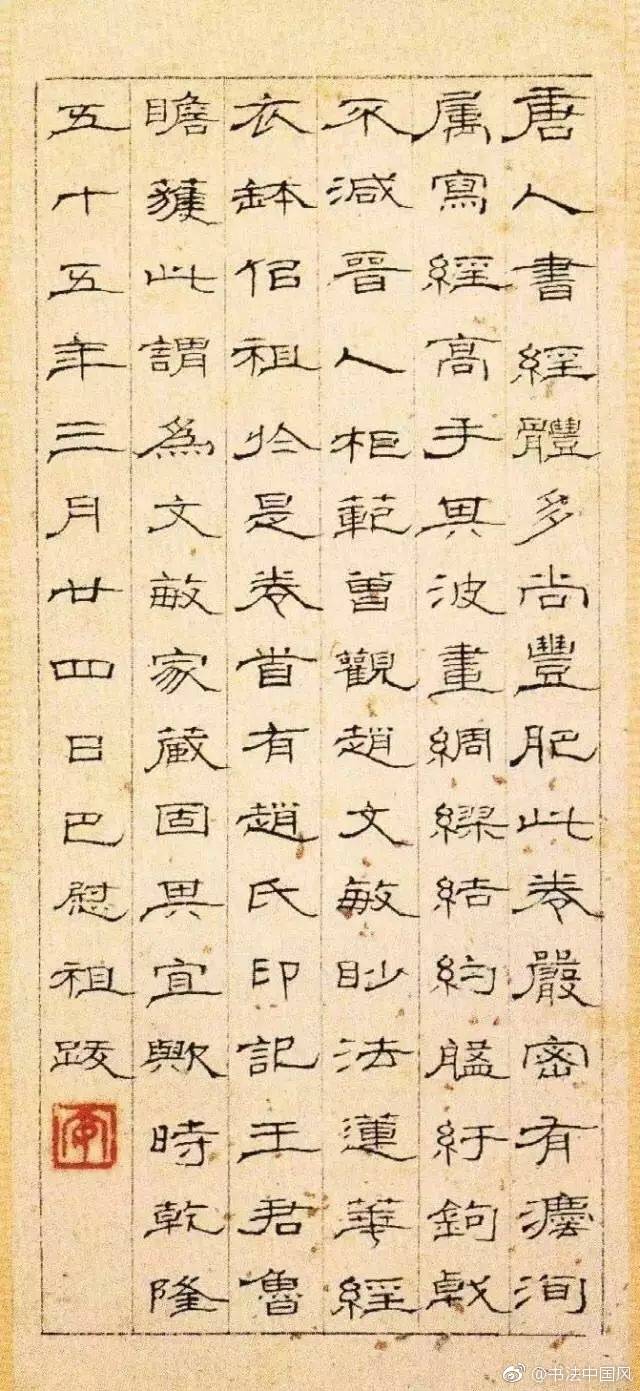 唐人書經體多尚豐肥此卷嚴密有灋洵
屬寫經高手其波畫綢繆結約紆鉤戟
不減晉人柜範曾觀趙文敏眇法蓮華經
衣鉢佀祖於是卷首有趙氏印記王君魯
瞻獲此謂爲文敏家藏固其宜歟時乾隆
五十五年三月廿四日巴慰祖跋
@书法中国风